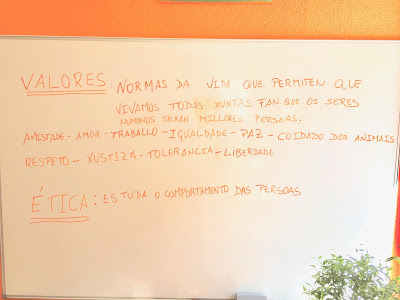 VALORES: NORMAS DA VIDA QUE PERMITEN QUE
VIVAMOS TODAS XUNTAS. FAN QUE OS SERES
HUMANOS SEXAN MILLORES PERSOAS.
AMISTADE - AMOR - TRABALLO - IGUALDADE - PAZ - COIDADO DOS ANIMAIS
RESPETO - XUSTIZA - TOLERANCIA - LIBERDADE
ÉTICA: ESTUDA O COMPORTAMENTO DAS PERSOAS